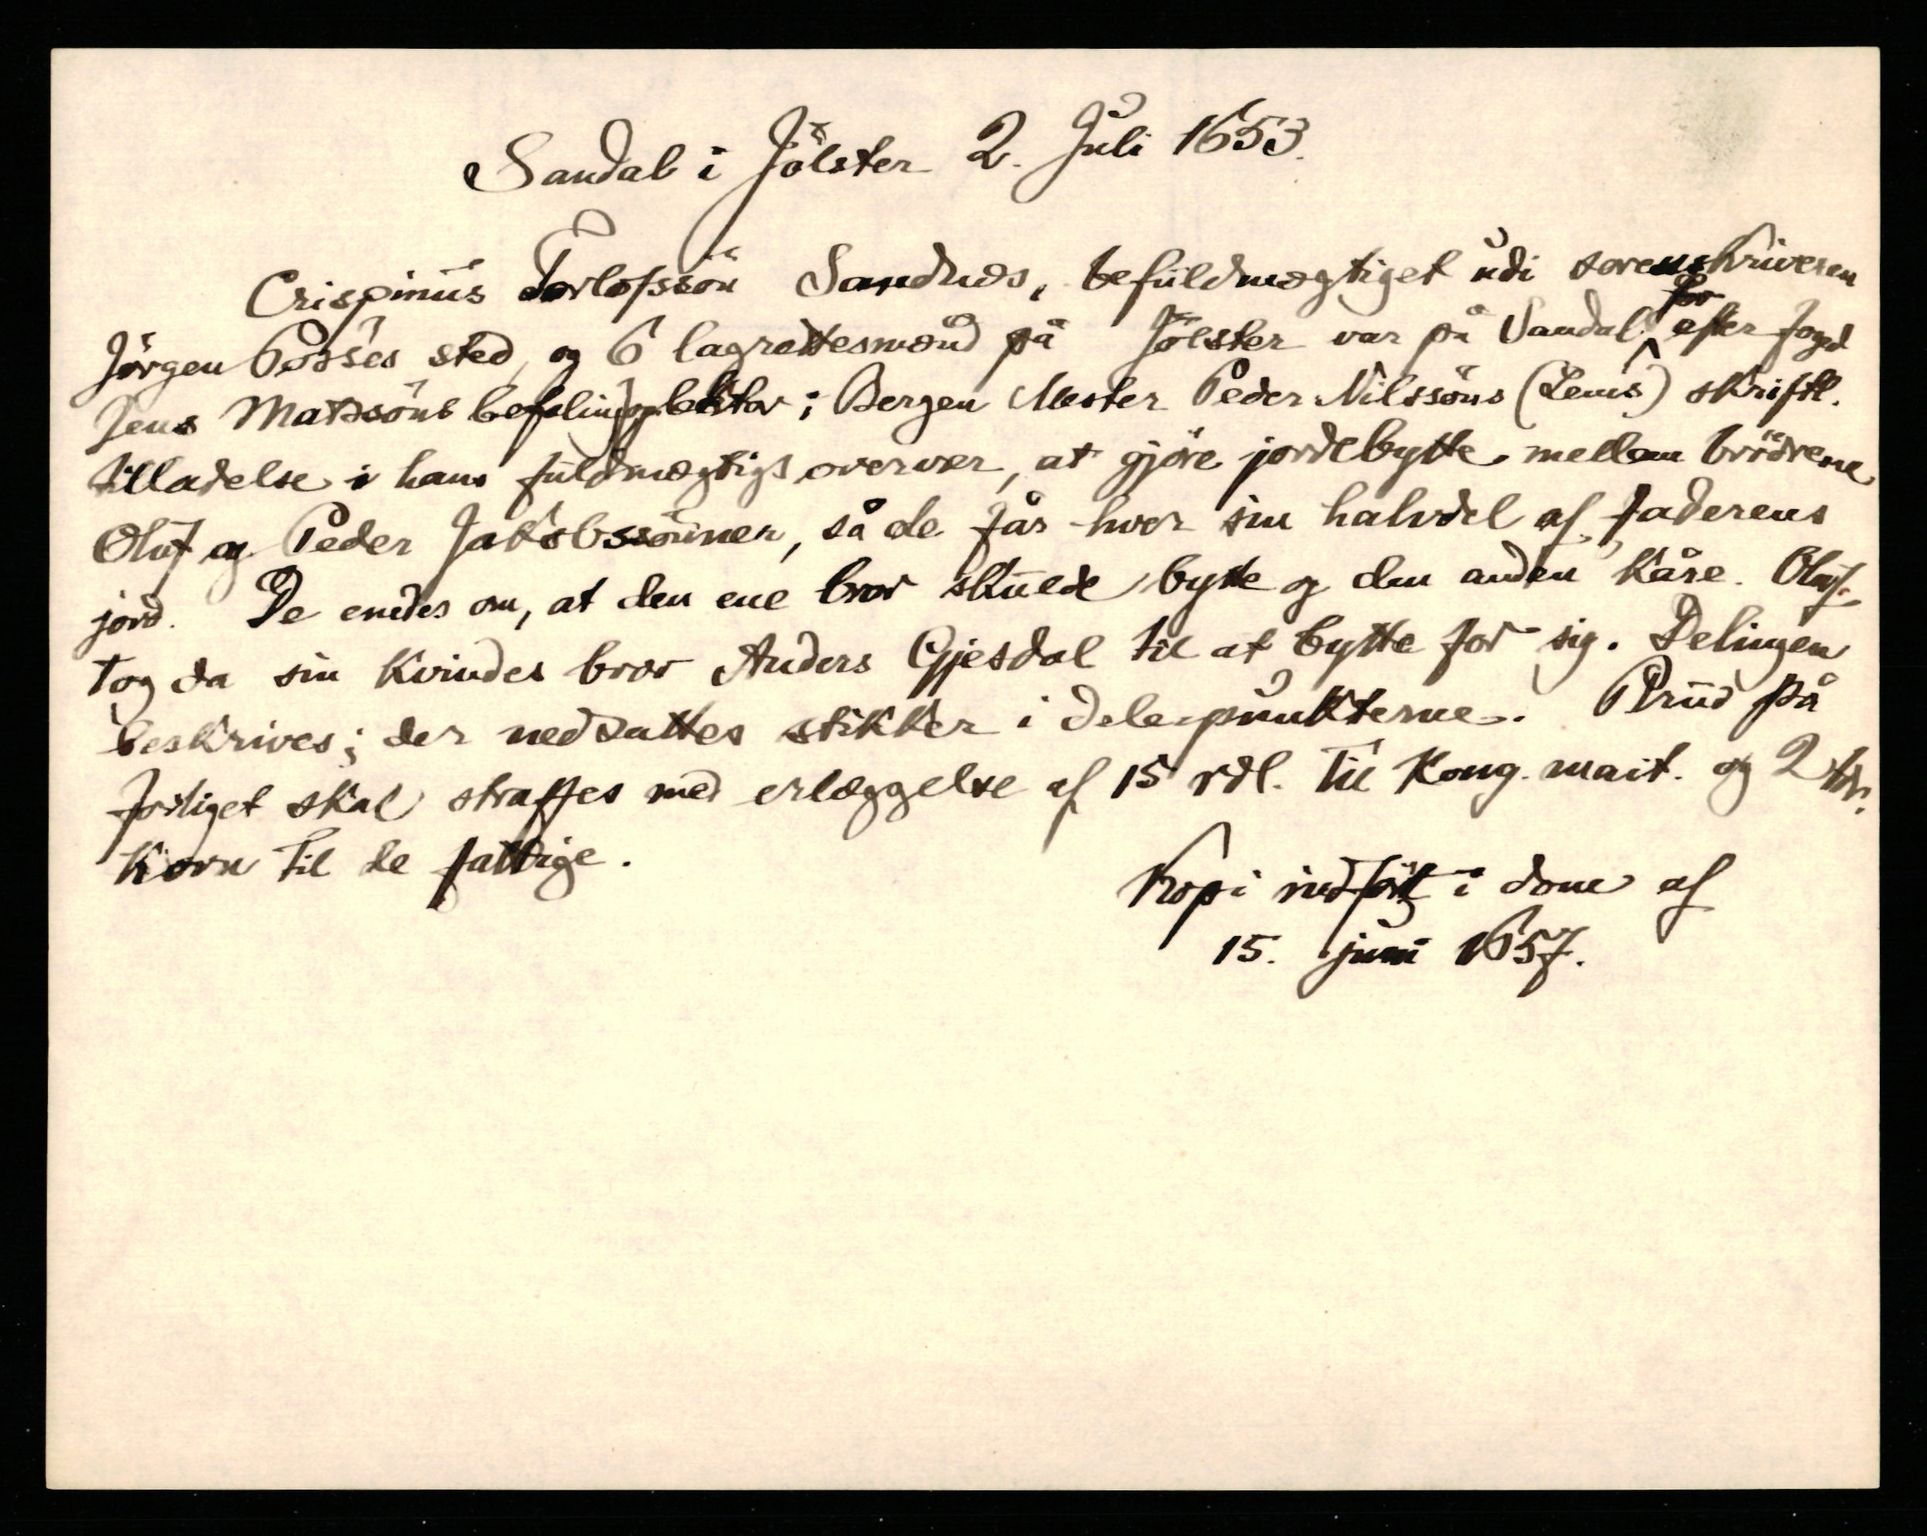 Sandal i Jölster 2. Juli 1653.
Crispinus Torlofssön Sandnes, befuldmægtiget udi sorenskriveren
Jörgen Posses sted, og 6 lagrettesmænd på Jölster var på Sandal for efter foged
Jens Matssöns befaling og lektor i Bergen Mester Peder Nilssöns (Lems) skriftl.
tilladelse i hans fuldmægtigs overvær, at gjöre jordebytte mellem brödrene
Oluf og Peder Jakobssönner, så de får hver sin halvdel af faderens
jord. De enedes om, at den ene bror skulde bytte og den anden kåre. Oluf
tog da sin kvindes bror Anders Gjesdal til at bytte for sig. Delingen
beskrives; der nedsattes stikker i delepunkterne. Brud på
forliget skal straffes med erlæggelse af 15 rdl. til Kong. mait. og 2 tdr.
Korn til de fattige.
Kopi indfört i dome af
15. juni 1657.